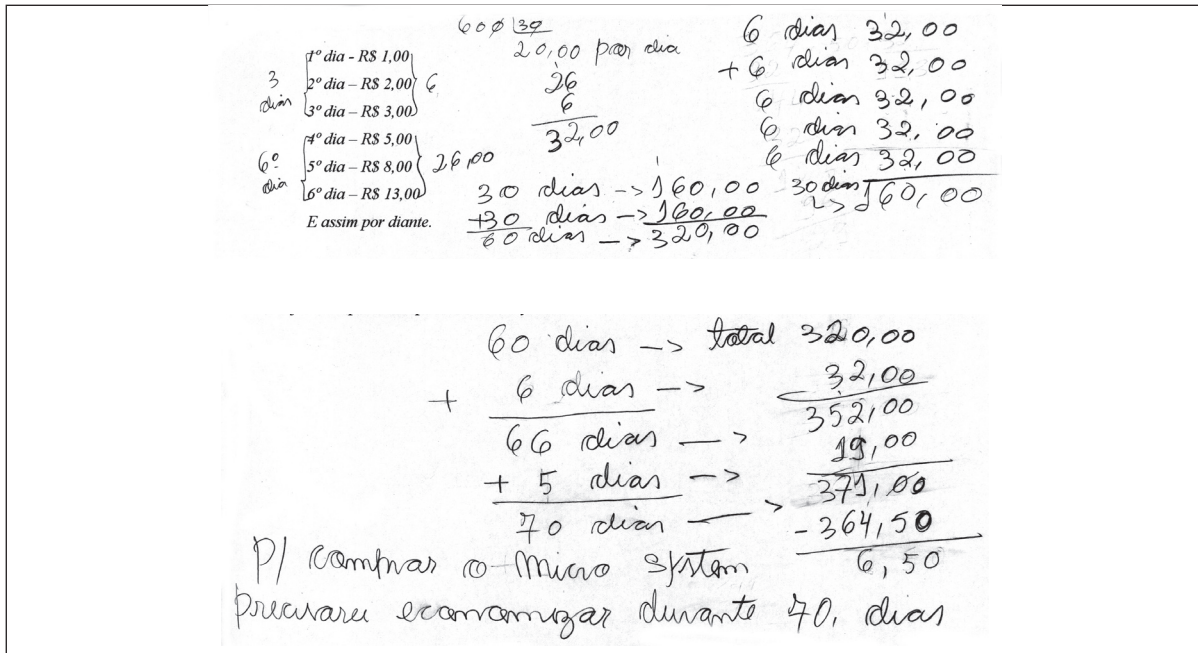 600 30
20,00 por dia
3 dias
1º dia - R$ 1,00
2º dia – R$ 2,00
3º dia – R$ 3,00
6
6º dia
4º dia – R$ 5,00
5º dia – R$ 8,00
6º dia – R$ 13,00
26,00
E assim por diante.
26
6
32,00
30 dias -> 160,00
+30 dias -> 160,00
60 dias -> 320,00
6 dias 32,00
+ 6 dias 32,00
6 dias 32,00
6 dias 32,00
6 dias 32,00
30 dias -> 160,00
60 dias -> total 320,00
+ 6 dias -> 32,00
352,00
66 dias -> 19,00
+ 5 dias -> 371,00
70 dias -> - 364,50
6,50
P/ comprar o Micro System
precisará economizar durante 70, dias